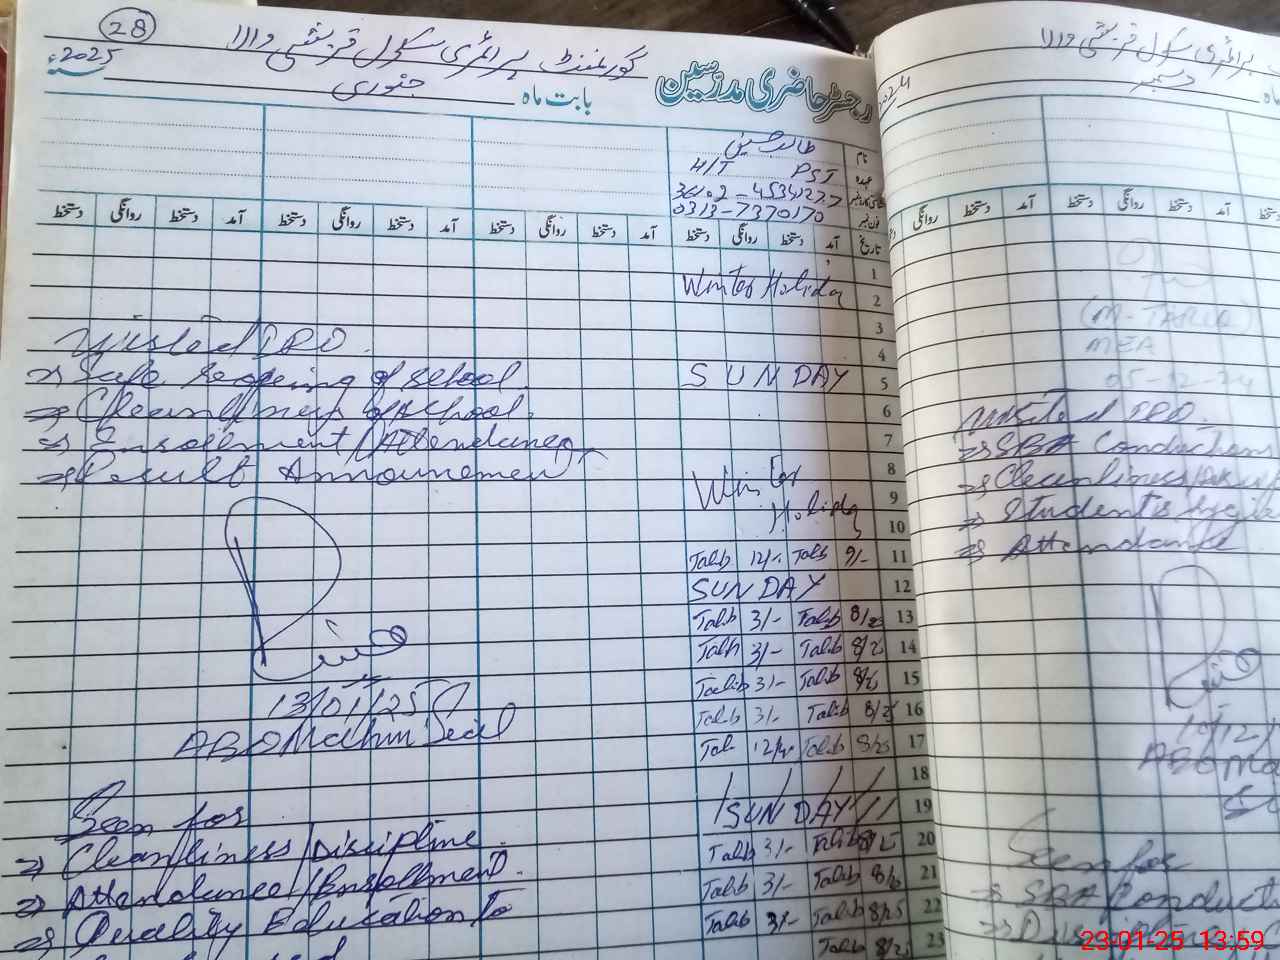 28
گورنمنٹ پرائمری سکول قریشی والا
رجسٹر حاضری مدرسین
بابت ماہ جنوری سنہ 2025ء
نام طالب حسین
عہدہ H/T PST
فون نمبر 0313-7370170
تاریخ آمد دستخط روانگی دستخط آمد دستخط روانگی دستخط آمد دستخط روانگی دستخط آمد دستخط روانگی دستخط
1
2 Winter Holiday
3
4
5 SUN DAY
6
7
8
9 Winter
10 Holiday
11 Talib 12/- Talib 9/-
12 SUN DAY
13 Talib 3/- Talib 8/25
14 Talib 3/- Talib 8/25
15 Talib 3/- Talib 8/25
16 Talib 3/- Talib 8/25
17 Talib Talib 8/25
18
19 SUN DAY
20 Talib 3/- Talib 8/25
21 Talib 3/- Talib 8/25
22 Talib 3/- Talib 8/25
23 Talib 8/25
Visited
⇒ Safe reopening of school
⇒ Cleanliness of school
⇒ Enrollment/Attendance
⇒ Result Announcement
13/01/25
Seen for
⇒ Cleanliness/Discipline
⇒ Attendance/Enrollment
⇒ Quality Education to
پرائمری سکول قریشی والا
ماہ دسمبر 2024
دستخط آمد دستخط روانگی دستخط آمد دستخط
(M-TARIQ)
MEA
05-12-24
Visited
⇒ SBA Conduction
⇒ Cleanliness
⇒ Students
⇒ Attendance
10/12/
Seen for
⇒ SBA Conduct
23-01-25 13:59